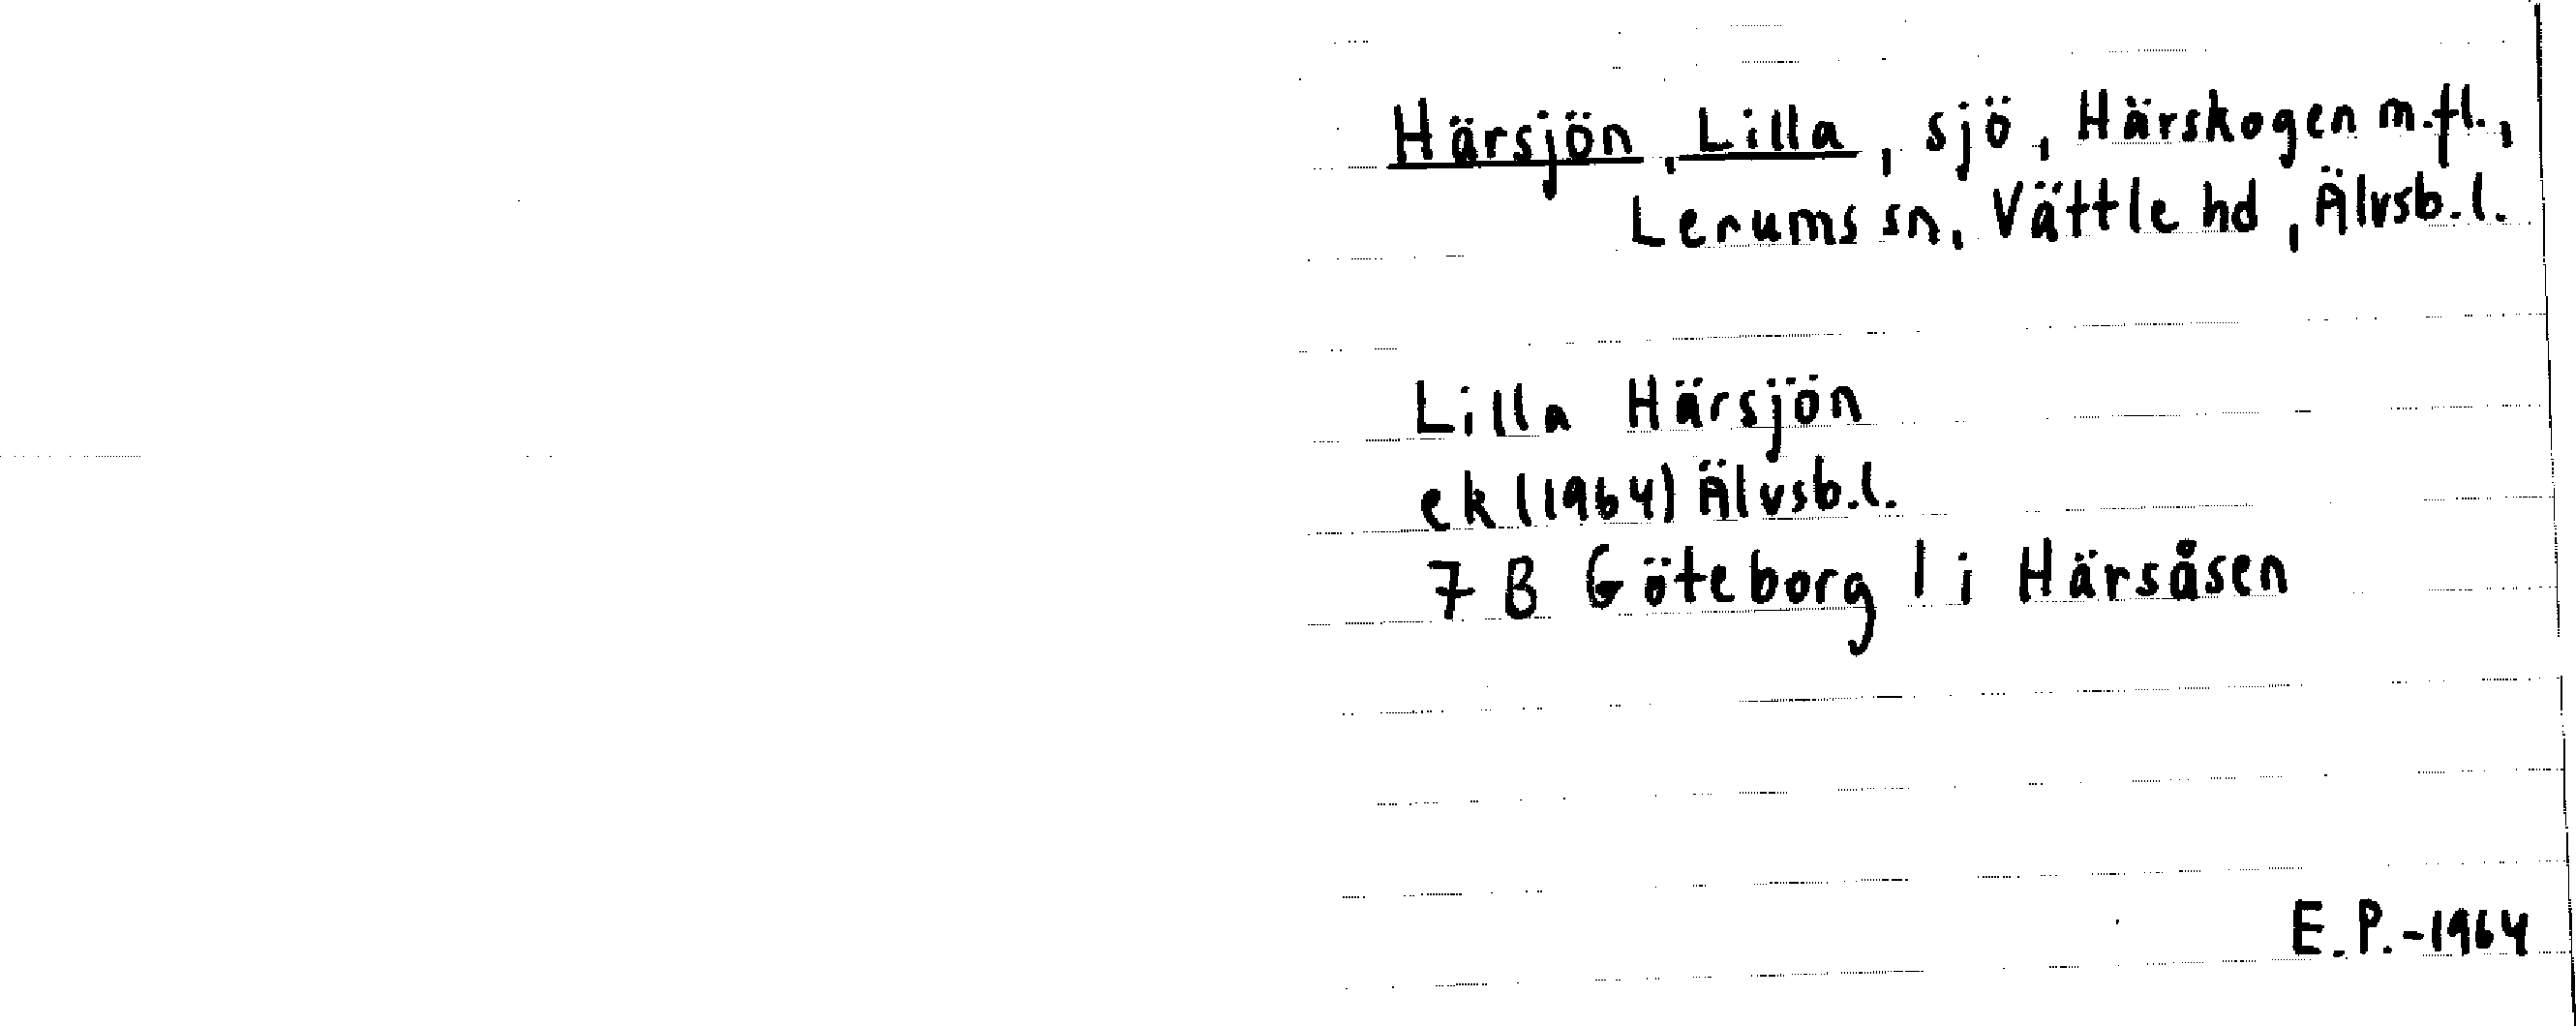 Härsjön, Lilla, sjö, Härskogen m.fl.,
Lerums sn, Vättle hd, Älvsb.l.
Lilla Härsjön
ek (1964) Älvsb.l.
7 B Göteborg 1 i Härsåsen
E.P.-1964